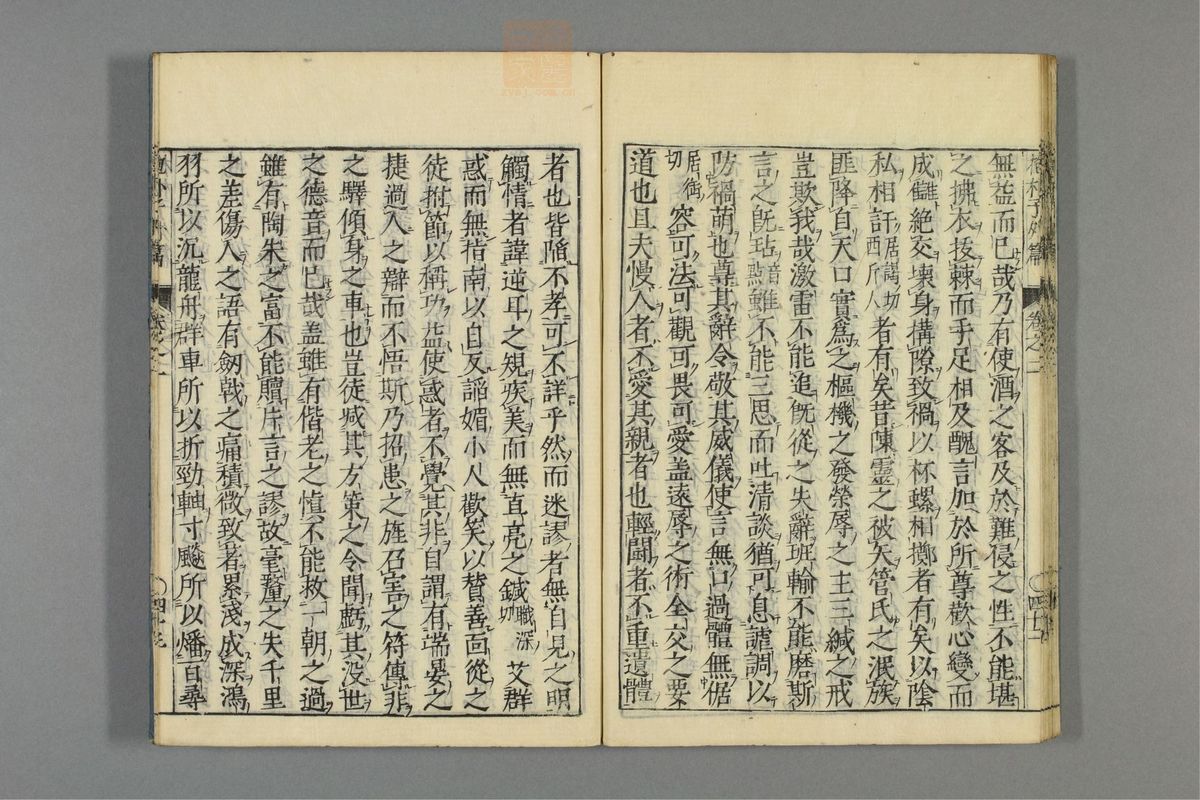 無益而已哉乃有使酒之客及於難侵之性不能堪
之拂衣拔棘而手足相及醜言加於所尊歡心變而
成讎絕交壞身搆隙致禍以杯螺相擲者有矣以陰
私相訐居謁切西所人者有矣昔陳靈之被矢管氏之泯族
匪降自天口實爲之樞機之發榮辱之主三緘之戒
豈欺我哉激雷不能追既從之失辭班輸不能磨斯
言之既玷音點雖不能三思而吐清談猶可息謔調以
防禍萌也尊其辭令敬其威儀使言無口過體無倨
居御切容可法可觀可畏可愛盖遠辱之術全交之要
道也且夫慢人者不愛其親者也輕鬬者不重遺體
者也皆陷不孝可不詳乎然而迷謬者無自見之明
觸情者諱逆耳之規疾美而無直亮之鍼職深切艾群
惑而無指南以自反諂媚小人歡笑以賛善面從之
徒拊節以稱功益使惑者不覺其非自謂有端晏之
捷過人之辯而不悟斯乃招患之旌召害之符傳非
之驛傾身之車也豈徒減其方策之令聞虧其没世
之德音而已哉盖雖有偕老之慎不能救一朝之過
雖有陶朱之富不能贖片言之謬故毫釐之失千里
之差傷人之語有劒戟之痛積微致著累淺成深鴻
羽所以沉龍舟群車所以折勁軸寸飈所以燔百尋